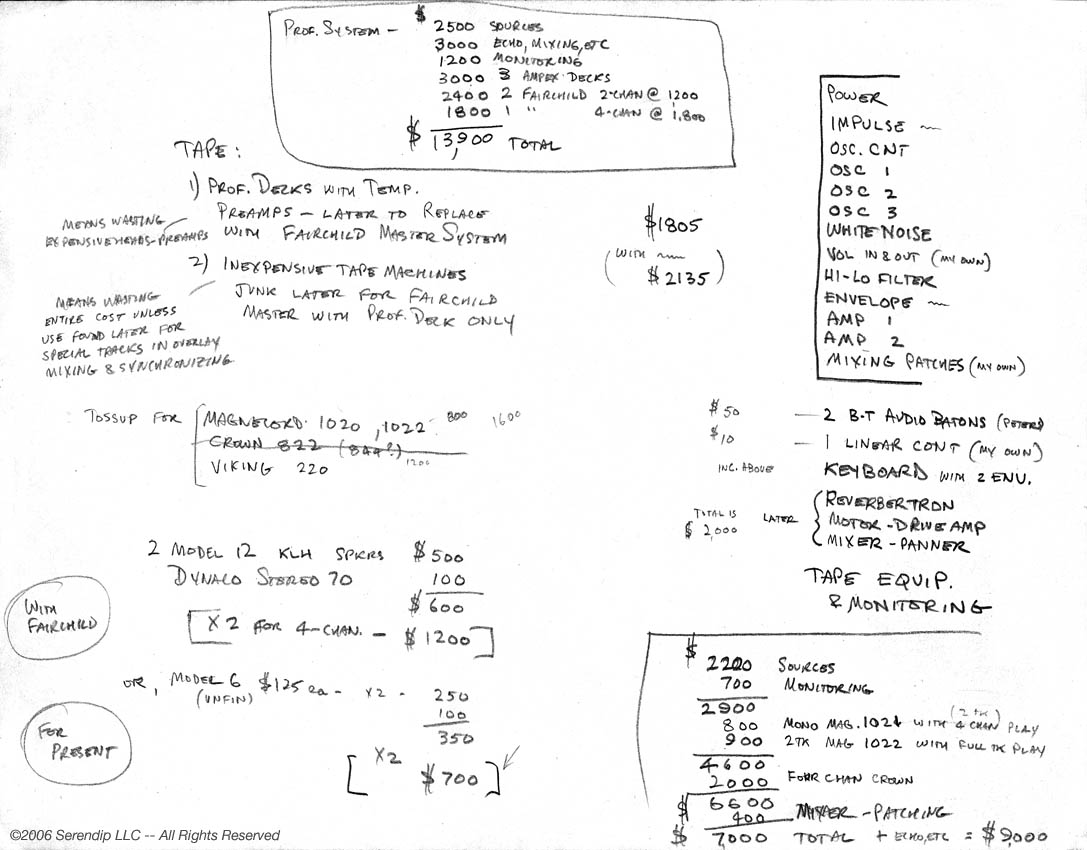 PROF. SYSTEM —
$ 2500 SOURCES
3000 ECHO, MIXING, ETC
1200 MONITORING
3000 3 AMPEX DECKS
2400 2 FAIRCHILD 2-CHAN @ 1200
1800 1 " 4-CHAN @ 1,800
$ 13,900 TOTAL
TAPE:
1) PROF. DECKS WITH TEMP.
PREAMPS — LATER TO REPLACE
WITH FAIRCHILD MASTER SYSTEM
MEANS WASTING
EXPENSIVE HEADS-PREAMPS
2) INEXPENSIVE TAPE MACHINES
JUNK LATER FOR FAIRCHILD
MASTER WITH PROF. DECK ONLY
MEANS WASTING
ENTIRE COST UNLESS
USE FOUND LATER FOR
SPECIAL TRACKS IN OVERLAY
MIXING & SYNCHRONIZING
TOSSUP FOR
MAGNECORD 1020, 1022 — 800 1600
CROWN 822 (844?)
VIKING 220 1200
2 MODEL 12 KLH SPKRS $500
DYNACO STEREO 70 100
$600
[X2 FOR 4-CHAN. — $1200]
WITH
FAIRCHILD
OR, MODEL 6 $125 ea — X2 — 250
(UNFIN)
100
350
X2
[$700]
FOR
PRESENT
$1805
(WITH
$2135)
POWER
IMPULSE
OSC. CNT
OSC 1
OSC 2
OSC 3
WHITE NOISE
VOL IN & OUT (MY OWN)
HI-LO FILTER
ENVELOPE
AMP 1
AMP 2
MIXING PATCHES (MY OWN)
$50 — 2 B-T AUDIO BATONS (PETERS)
$10 — 1 LINEAR CONT (MY OWN)
INC. ABOVE KEYBOARD WITH 2 ENV.
REVERBERTRON
TOTAL IS $2,000 LATER MOTOR-DRIVE AMP
MIXER-PANNER
TAPE EQUIP.
& MONITORING
$ 2200 SOURCES
700 MONITORING
2900
(2 TK)
800 MONO MAG. 1021 WITH 4 CHAN PLAY
900 2TK MAG 1022 WITH FULL TK PLAY
4600
2000 FOUR CHAN CROWN
$ 6600
400 MIXER-PATCHING
$ 7,000 TOTAL + ECHO, ETC = $9,000
©2006 Serendip LLC -- All Rights Reserved